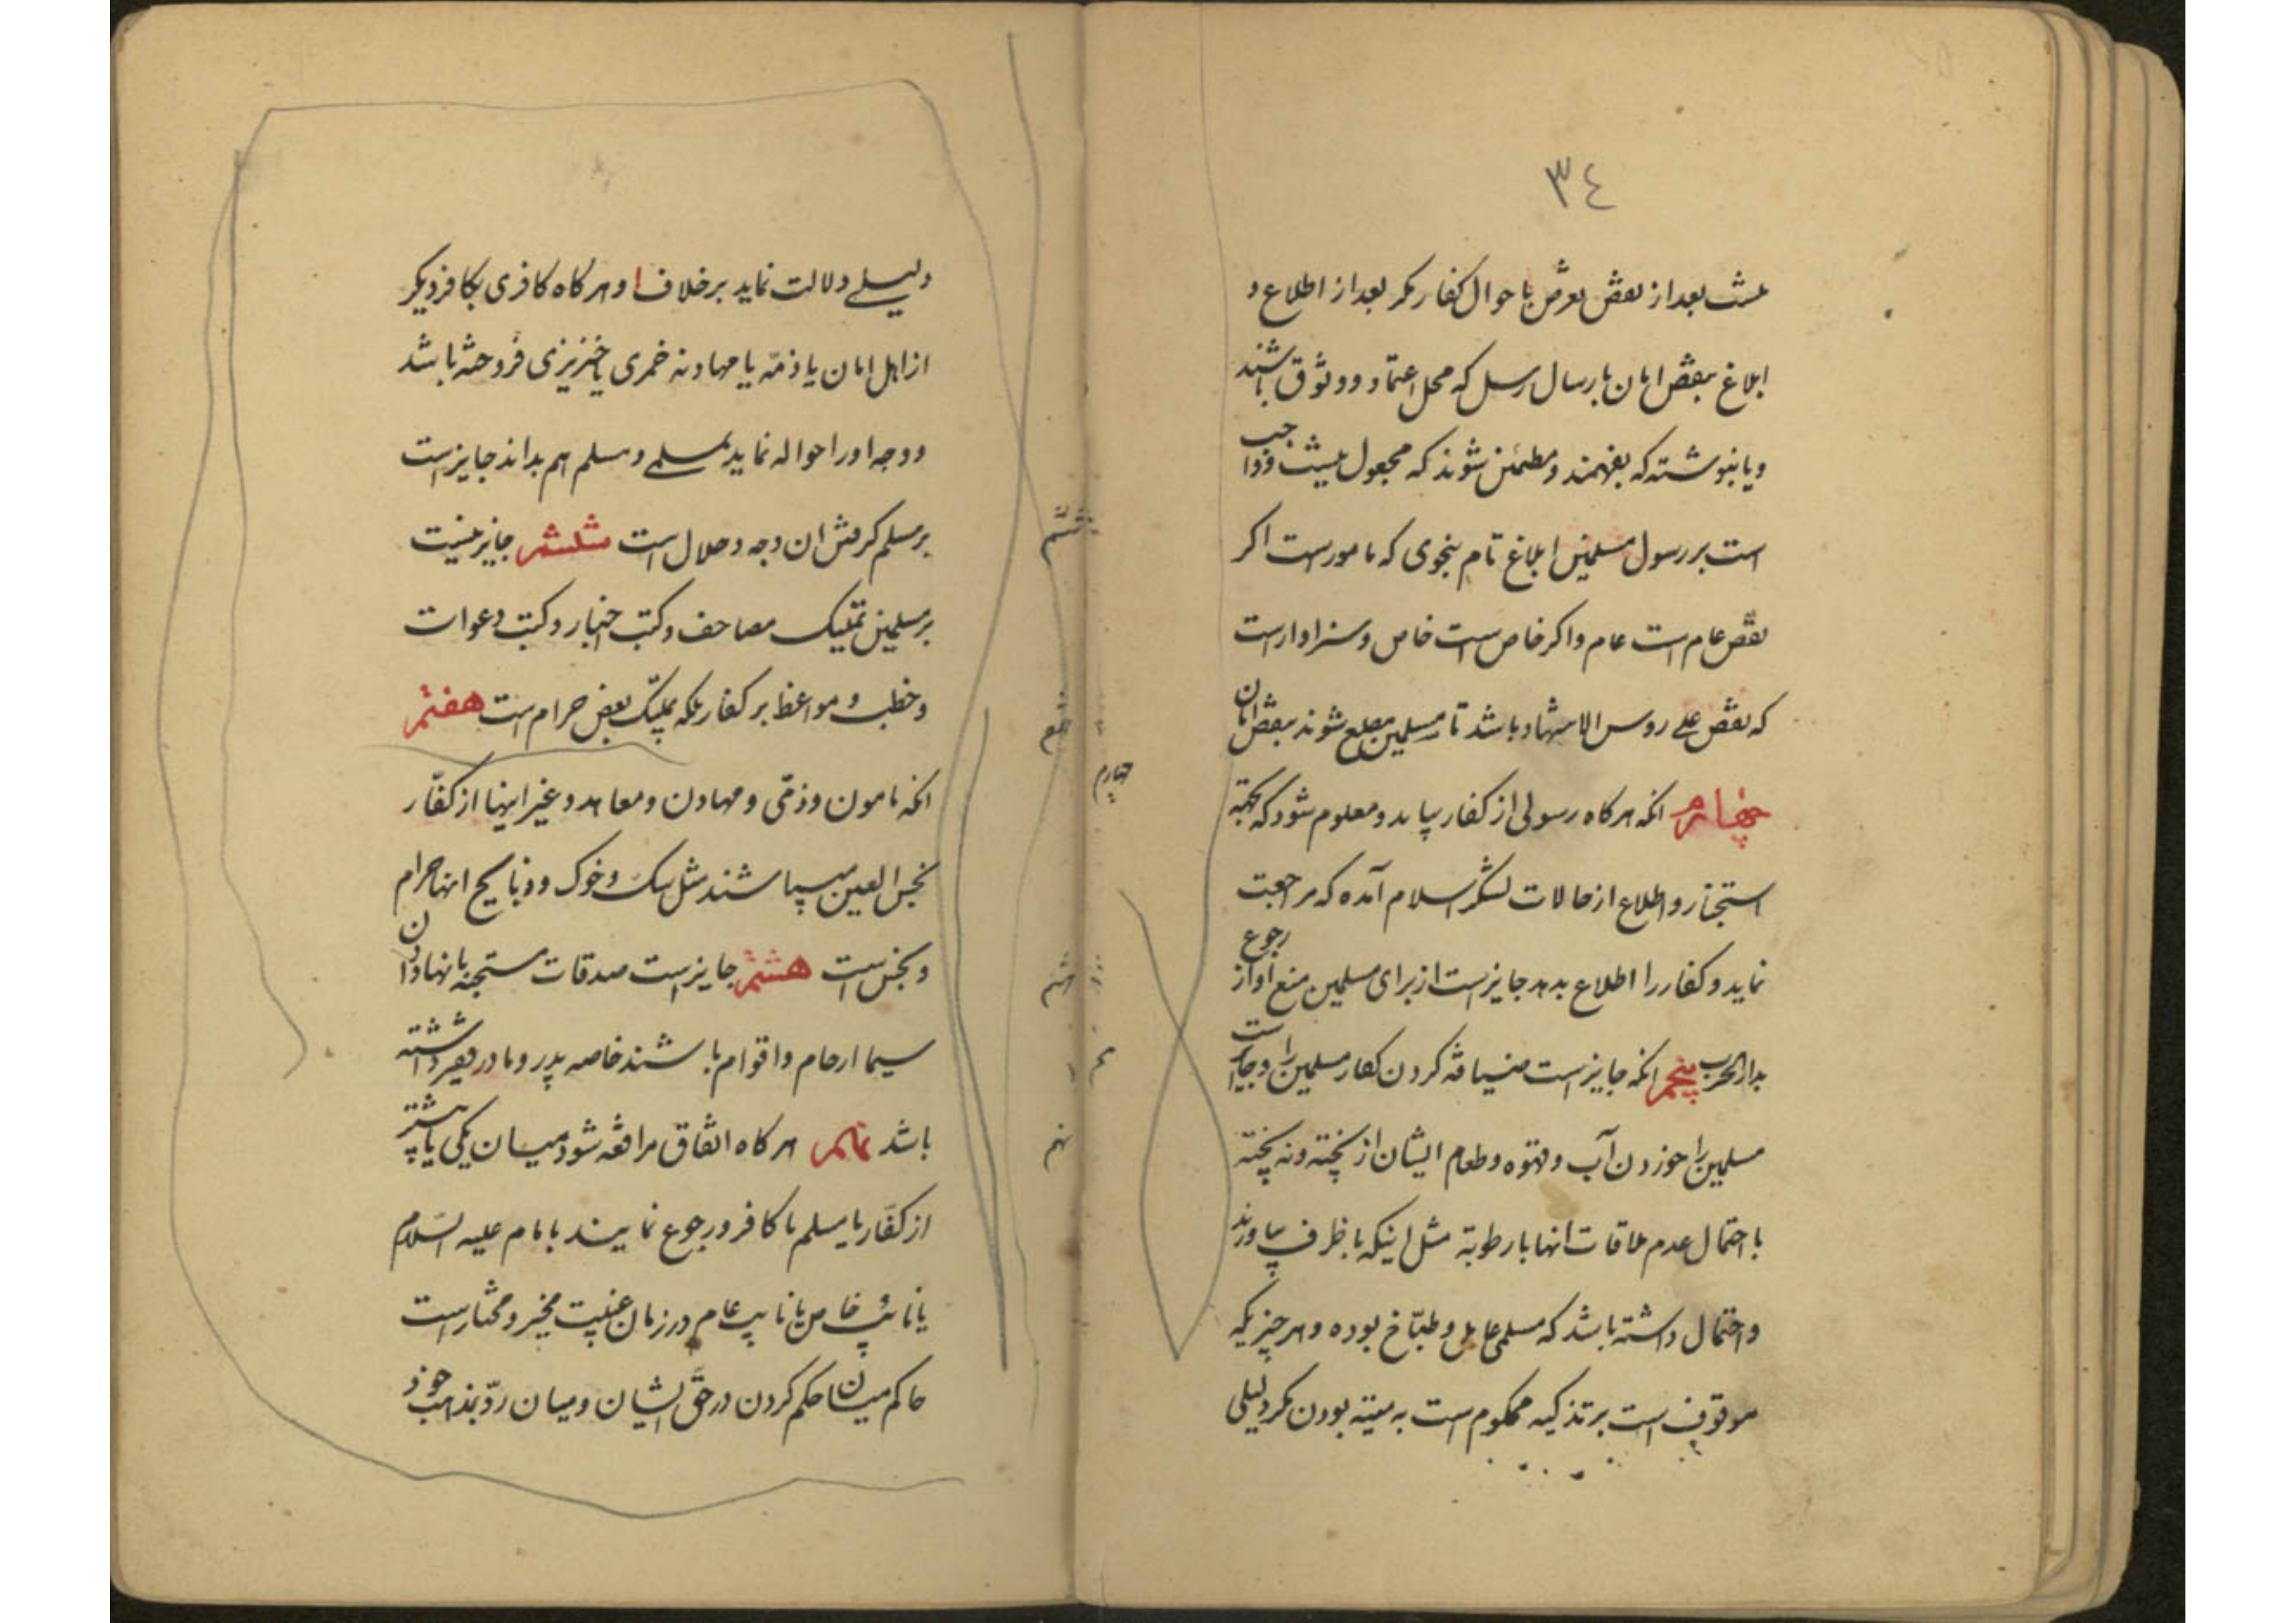 ٣٤
نیست بعد از نقض تعرض باحوال کفار مکر بعد از اطلاع و
ابلاغ بنقض امان بارسال رسل که محل اعتماد و وثوق باشند
و یا بنوشته که بفهمند و مطمئن شوند که مجعول نیست و واجب
است بر رسول مسلمین ابلاغ تام بنحوی که مامور است اکر
نقض عام است عام و اکر خاص است خاص و سزاوار است
که نقض علی روس الاشهاد باشد تا مسلمین مطلع شوند بنقض امان
چهارم انکه هرکاه رسولی از کفار بیاید و معلوم شود که بجهته
استخبار و اطلاع از حالات لشکر اسلام آمده که مراجعت
نماید و کفار را اطلاع بدهد جایز است از برای مسلمین منع او از رجوع
بدار الحرب پنجم انکه جایز است ضیافة کردن کفار مسلمین را و جایز است
مسلمین را خوردن آب و قهوه و طعام ایشان از پخته و نه پخته
با احتمال عدم ملاقات انها با رطوبة مثل اینکه با ظرف بیاورند
و احتمال داشته باشد که مسلمی عامل و طباخ بوده و هر چیزیکه
موقوف است بر تذکیه محکوم است به میته بودن مکر دلیلی
دلیلی دلالت نماید برخلاف و هرکاه کافری بکافر دیکر
از اهل امان یا ذمّه یا مهادنه خمری یا خنزیری فروخته باشد
و وجه او را حواله نماید بمسلمی و مسلم هم بداند جایز است
بر مسلم کرفتن ان وجه و حلال است ششم جایز نیست
بر مسلمین تملیک مصاحف و کتب اخبار و کتب دعوات
و خطب و مواعظ بر کفار بلکه تملیک بعض حرام است هفتم
انکه مامون و ذمّی و مهادن و معاهد و غیر اینها از کفّار
نجس العین میباشند مثل سک و خوک و ذبایح انها حرام
و نجس است هشتم جایز است صدقات مستحبه بانها دادن
سیما ارحام و اقوام باشند خاصه پدر و مادر فقیر داشته
باشد نهم هرکاه اتفاق مرافعه شود میان یکی یا بیشتر
از کفّار با مسلم یا کافر و رجوع نمایند بامام علیه السّلام
یا نائب خاص یا نایب عام در زمان غیبت مخیر و مختار است
حاکم میان حکم کردن در حقّ ایشان و میان ردّ بمذاهب خود
ششم
هفتم
چهارم
هشتم
نهم